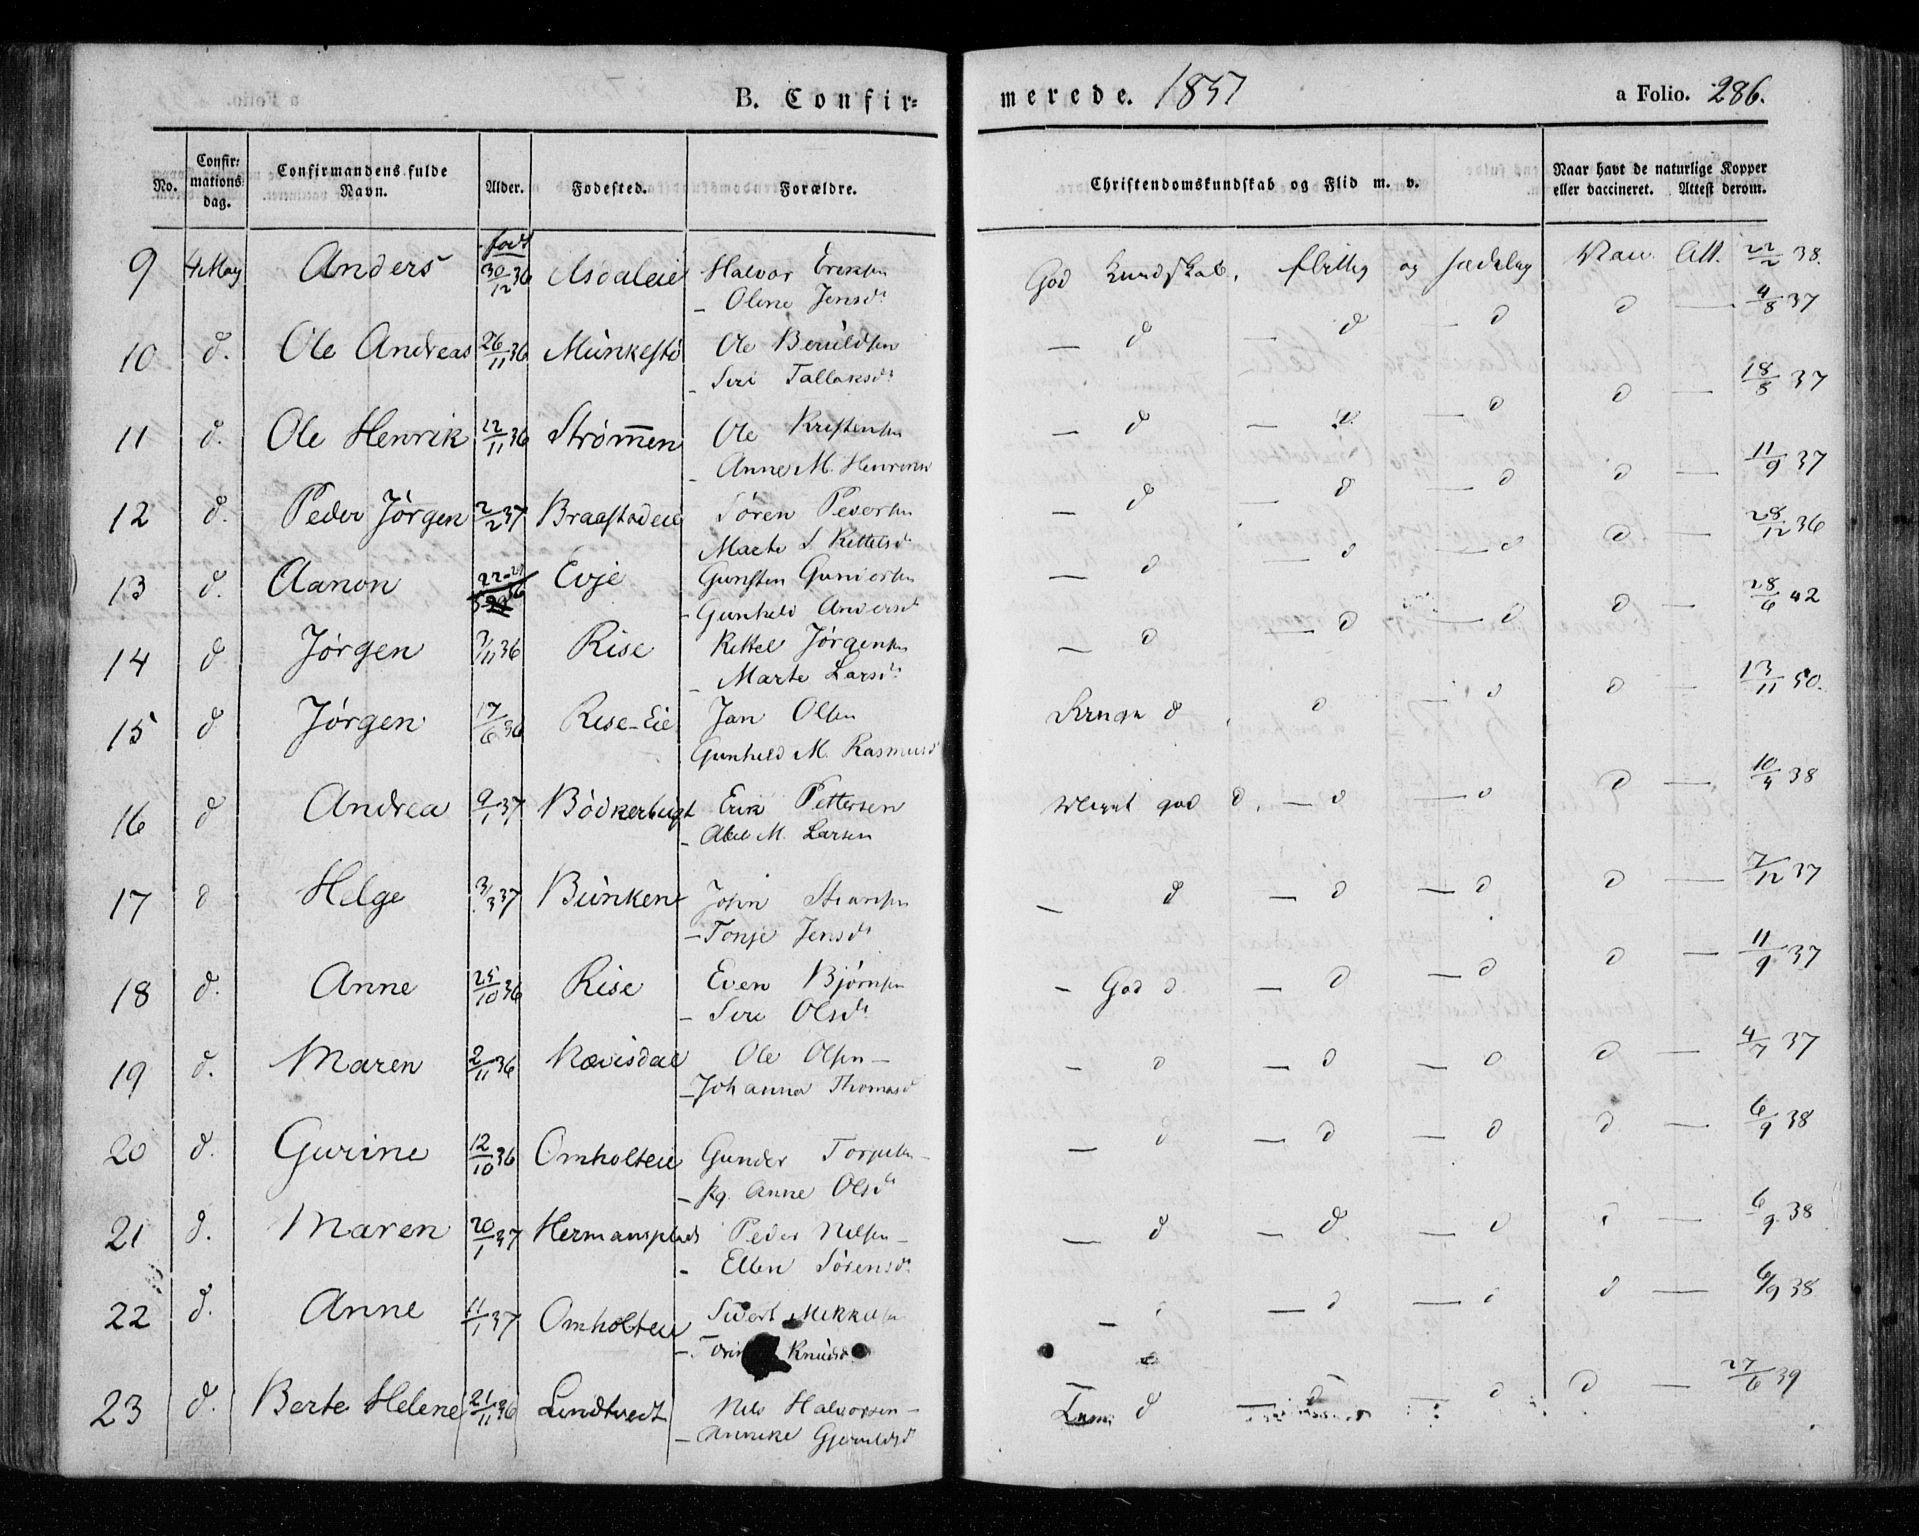 B. Confir=
merede. 1857
a Folio. 286.
No.
Confir=
mations
dag.
Confirmandens fulde
Navn.
Alder.
Fødested.
Forældre.
Christendomskundskab og Flid m. v.
Naar havt de naturlige Kopper
eller vaccineret. Attest derom.
9 4 May Anders født 30/12 36 Asdaleie Halvor Eriksen God Kundskab, flittig og sædelig Vac. Att. 22/2 38.
- Olene Jensd.
10 d. Ole Andreas 26/11 36 Munkestø Ole Beruldsen — d — d — d d — 4/8 37
- Siri Tallaksd.
11 d. Ole Henrik 22/11 36 Strømmen Ole Kristensen — d — d. — d d — 18/8 37
- Anne M. Henriksd
12 d. Peder Jørgen 2/2 37 Braastadeie Søren Pedersen — d — d — d d — 11/9 37
Marte S. Kittelsd
13 d. Aanon Evje Gunsten Gundersen — d — d — d d — 28/12 36
- Gunhild Andersd
14 d Jørgen 7/11 36 Rise Kittel Jørgensen — d — d — d d — 28/6 42
- Marte Larsd.
15 d Jørgen 17/6 36 Rise-Eie Jan Olsen d d — d d — 13/11 50.
Gunhild M. Rasmusd
16 d Andrea 9/1 37 Bødkerbugt Erik Pettersen Meget god d. — d — d d — 10/4 38
- Abel M. Larsen
17 d Helge 3/3 37 Bunken John — d — d — d d — 7/12 37
- Tonje Jensd.
18 d. Anne 25/10 36 Rise Even Bjørnsen - God d. — d — d d — 11/9 37
- Siri Olsd.
19 d. Maren 2/11 36 Nævisdal Ole Olsen — - d — d — d d — 4/7 37
- Johanna Thomasd
20 d. Gurine 12/10 36 Omholteie Gunder — d — d — d d — 6/9 38
- Kg. Anne Olsd.
21 d. Maren 20/1 37 Hermansplads Peder Nilsen — — d — d — d — 6/9 38
- Ellen Sørensd.
22 d. Anne 11/1 37 Omholteie Sivert Mikkelsen — — d — d d — 6/9 38
- Knudsd.
23 d. Berte Helene 21/11 36 Lindtvedt Nils Halvorsen — d d d — 27/6 39
- Annike